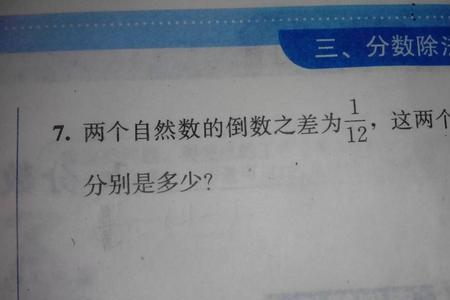 三、分数除法
7. 两个自然数的倒数之差为1/12，这两个
分别是多少？